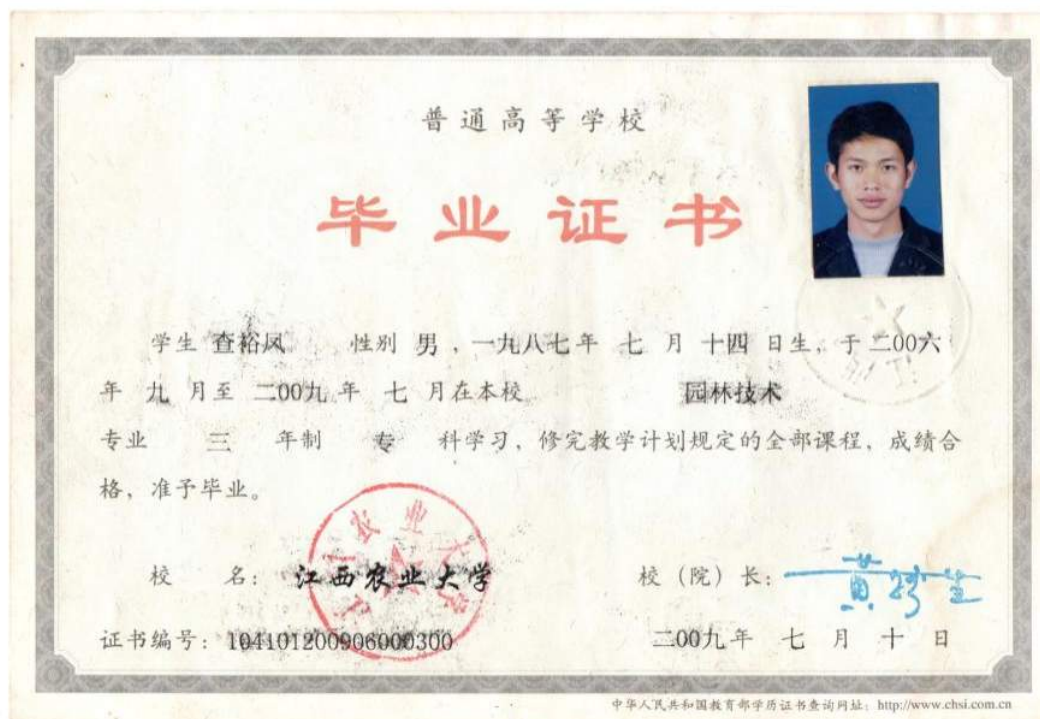 普通高等学校
毕业证书
学生 查裕凤 性别 男 ,一九八七年 七 月 十四 日生,于 二00六
年 九 月至 二00九 年 七 月在本校 园林技术
专业 三 年制 专 科学习,修完教学计划规定的全部课程,成绩合
格,准予毕业。
校 名: 江西农业大学 校(院)长:
证书编号: 104101200906000300 二00九年 七 月 十 日
中华人民共和国教育部学历证书查询网址: http://www.chsi.com.cn